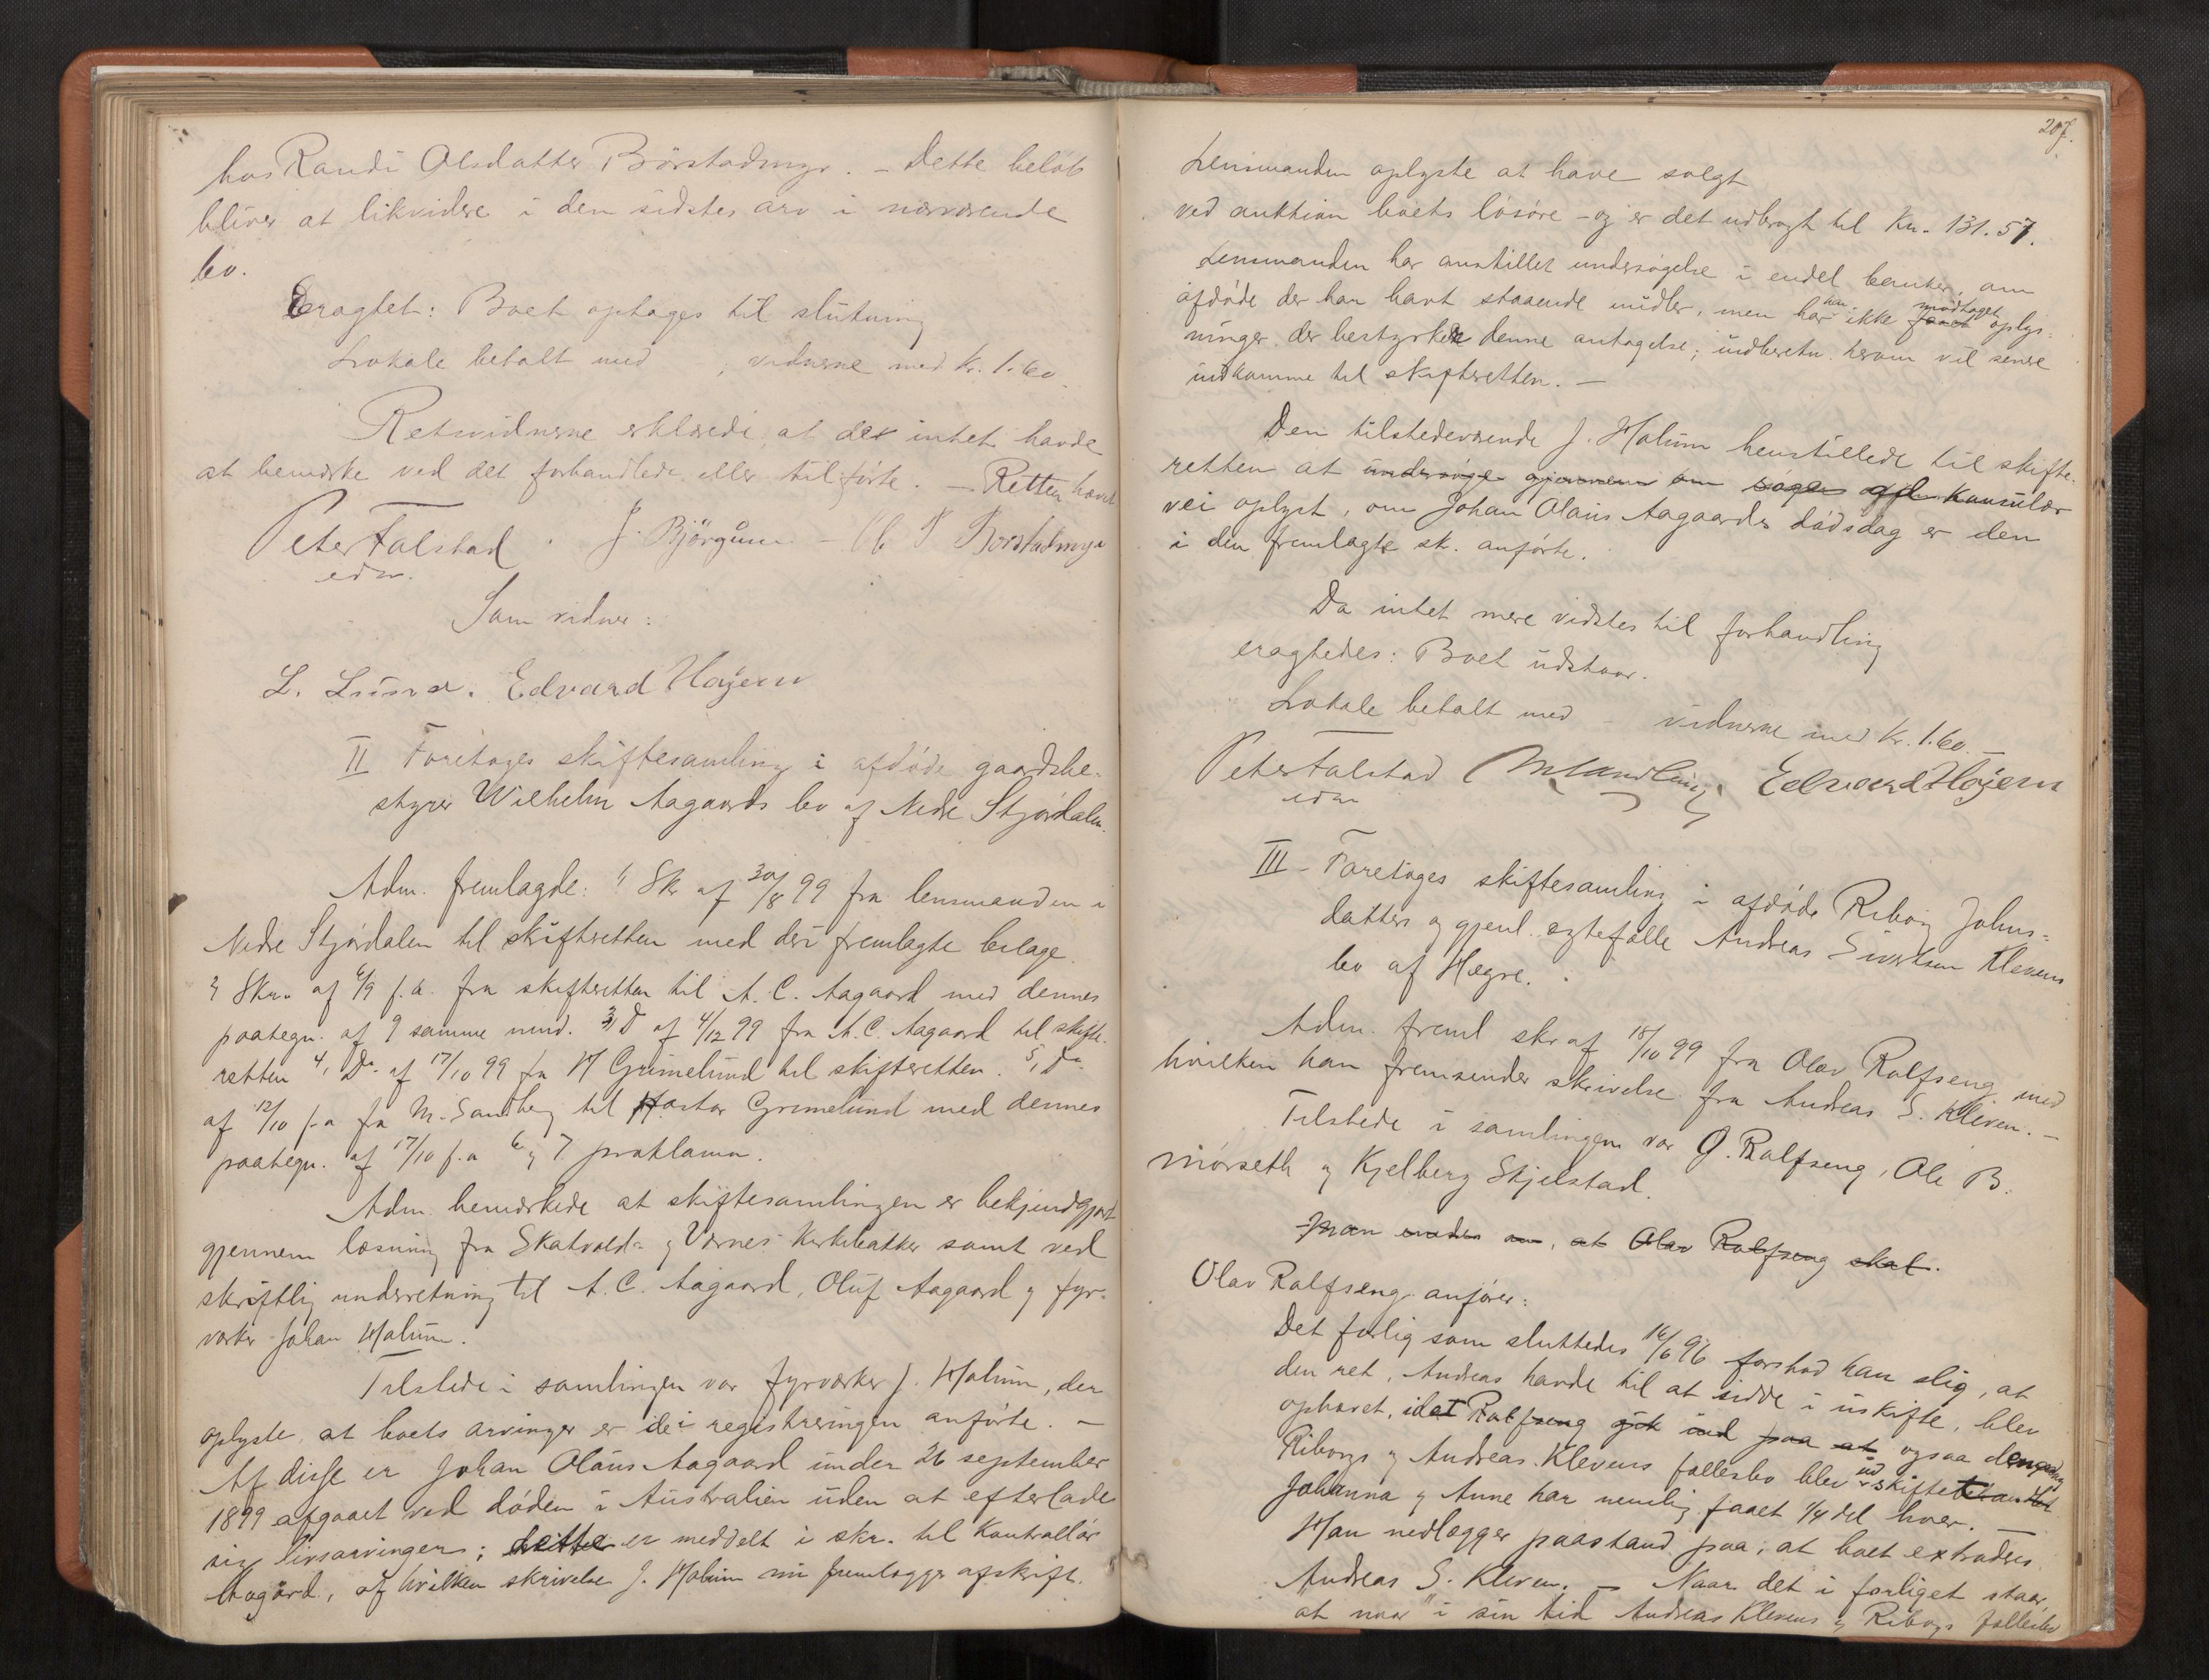 hos Randi Olsdatter Börstadmyr. – Dette belöb
bliver at likvidere i den sidstes arv i nærværende
bo.
Eragtet: Boet optages til slutning
Lokale betalt med – , vidnerne med kr. 1.60.
Retsvidnerne erklærede, at de intet havde
at bemærke ved det forhandlede eller tilförte. – Retten hævet
Peter Falstad . J. Björgum – Ol. P. Borstadmyr
edm.
Som vidner:
L. Lund. Edvard Höyem
II Foretoges skiftesamling i afdöde gaardsbe-
styrer Wilhelm Aagaards bo af Nedre Stjördalen.
Adm. fremlagde: 1, Skr af 30/8 99 fra lensmanden i
Nedre Stjördalen til skifteretten med deri fremlagte bilage.
2, Skr. af 6/9 f.a. fra skifteretten til A. C. Aagaard med dennes
paategn. af 9 samme mnd. 3, D af 4/12 99 fra A. C. Aagaard til skifte-
retten 4, Do. af 17/10 99 fra H Grimelund til skifteretten. 5, Do.
af 12/10 f.a fra M. Sandberg til Hartor Grimelund med dennes
paategn. af 17/10 f.a 6 og 7 proklama.
Adm. bemærkede at skiftesamlingen er bekjendtgjort
gjennem læsning fra Skatvolds og Værnes kirkebakker samt ved
skriftlig underretning til A. C. Aagaard, Oluf Aagaard og fyr-
værker Johan Halum.
Tilstede i samlingen var fyrværker J. Halum, der
oplyste, at boets arvinger er de i registreringen anförte. –
Af disse er Johan Olaus Aagaard under 26 september
1899 afgaaet ved döden i Australien uden at efterlade
sig livsarvinger; dette er meddelt i skr. til Kontrollör
Aagård, af hvilken skrivelse J. Halum nu fremlægger afskrift.
207.
Lensmanden oplyste at have solgt
ved auktion boets lösöre – og er det udbragt til Kr. 131.57.
Lensmanden har anstillet undersögelse i endel banker, om
afdöde der har havt staaende midler, men har han ikke faaet modtaget oplys-
ninger, der bestyrker denne antagelse; indberetn. herom vil senere
indkomme til skifteretten. –
Den tilstedeværende J. Halum henstillede til skifte-
retten at undersöge gjennem om söges kunsulær
vei oplyst, om Johan Olaus Aagaards dödsdag er den
i den fremlagte sk. anförte.
Da intet mere vidstes til forhandling
eragtedes: Boet udstaar.
Lokale betalt med – vidnerne med Kr. 1.60. –
Peter Falstad Edvard Höyem
edm
III – Foretoges skiftesamling i afdöde Riborg Johns-
datters og gjenl. egtefælle Andreas Sivertsen Klevens
bo af Hegre.
Adm. freml skr af 18/10 99 fra Olav Rolfseng med
hvilken han fremsender skrivelse fra Andreas S. Kleven. –
Tilstede i samlingen var O. Rolfseng, Ole B.
Mörseth og Kjelberg Skjelstad.
Man om, at Olav Rolfseng skal.
Olav Rolfseng anförer:
Det forlig som sluttedes 16/6 96 forstod han slig, at
den ret, Andreas havde til at sidde i uskifte, blev
ophævet, idet Rolfseng gik ind paa at ogsaa
Riborgs og Andreas Klevens fællesbo blev udskiftet
Johanna og Anne har nemlig faaet 1/4 del hver. –
Han nedlægger paastand paa, at boet extraderes
Andreas S. Kleven. – Naar det i forliget staar,
at naar "i sin tid Andreas Klevens og Riborgs fællesbo